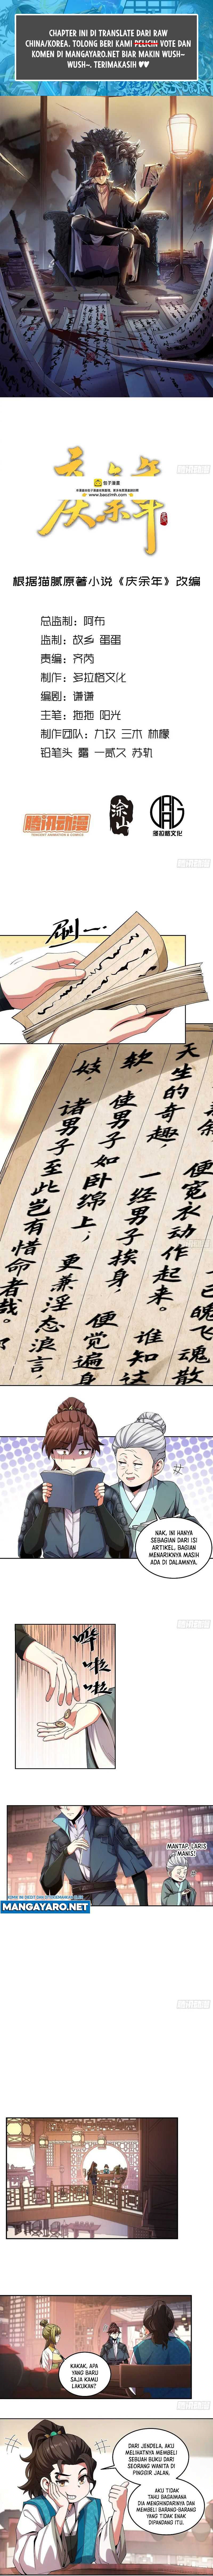 CHAPTER INI DI TRANSLATE DARI RAW
CHINA/KOREA. TOLONG BERI KAMI VOTE DAN
KOMEN DI MANGAYARO.NET BIAR MAKIN WUSH~
WUSH~. TERIMAKASIH ♥♥
庆余年
包子漫畫
www.baozimh.com
根据猫腻原著小说《庆余年》改编
总监制：阿布
监制：故乡 蛋蛋
责编：齐芮
制作：多拉格文化
编剧：谦谦
主笔：拖拖 阳光
制作团队：九玖 三木 林檬
铅笔头 露 一贰又 苏轨
腾讯动漫
TENCENT ANIMATION & COMICS
多拉格文化
刷一…
天生的奇趣，
软
使男子如卧绵上，
妓，
诸男子至此岂有惜命者哉。
便宽衣动作起来。
一经男子挨身，
更兼淫态浪言，
魄飞魂散
谁知这
便觉遍身
NAK, INI HANYA
SEBAGIAN DARI ISI
ARTIKEL, BAGIAN
MENARIKNYA MASIH
ADA DI DALAMNYA.
哗啦啦
MANTAP, LARIS
MANIS!
MANGAYARO.NET
KAKAK, APA
YANG BARU
SAJA KAMU
LAKUKAN?
DARI JENDELA, AKU
MELIHATNYA MEMBELI
SEBUAH BUKU DARI
SEORANG WANITA DI
PINGGIR JALAN.
AKU TIDAK
TAHU BAGAIMANA
DIA MENGHINDARINYA DAN
MEMBELI BARANG-BARANG
YANG TIDAK ENAK
DIPANDANG ITU.